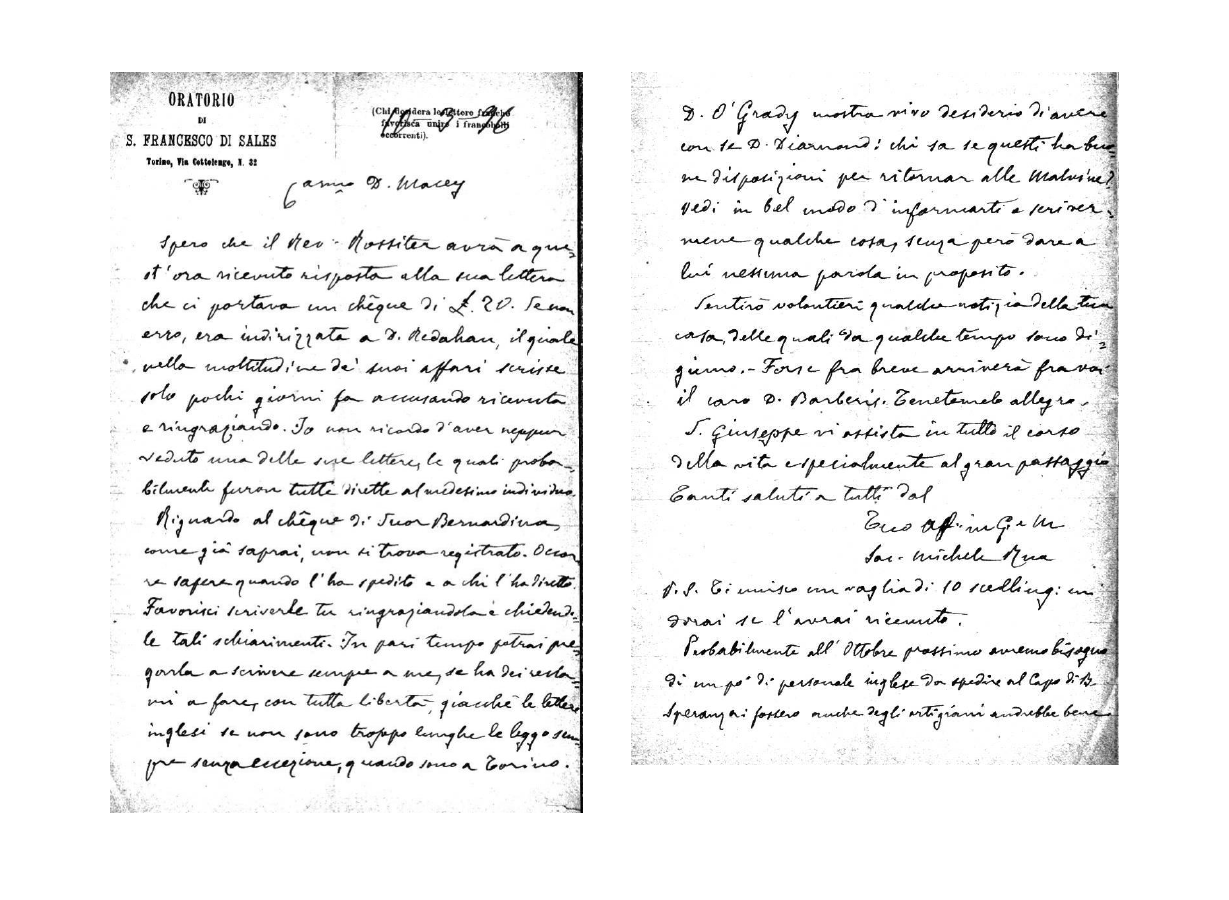 ORATORIO
DI
S. FRANCESCO DI SALES
Torino, Via Cottolengo, N. 32
(Chi desidera le lettere franche
favorisca unire i francobolli
occorrenti).
3 - 96
Carmo D. Macey
Spero che il Rev. Rossiter avrà a que-
st'ora ricevuto risposta alla sua lettera
che ci portava un chêque di £. 20. Se non
erro, era indirizzata a D. Redahan, il quale
nella moltitudine de' suoi affari scrisse
solo pochi giorni fa accusando ricevuta
e ringraziando. Io non ricordo d'aver neppur
veduto una delle sue lettere, le quali proba-
bilmente furon tutte dirette al medesimo individuo.
Riguardo al chêque di Suor Bernardina,
come già saprai, non si trova registrato. Occor-
re sapere quando l'ha spedito e a chi l'ha diretto.
Favorisci scriverle tu ringraziandola e chiedendo-
le tali schiarimenti. In pari tempo potrai pre-
garla a scrivere sempre a me, se ha dei recla-
mi a fare, con tutta libertà, giacchè le lettere
inglesi se non sono troppo lunghe le leggo sem-
pre senza eccezione, quando sono a Torino.
D. O'Grady mostra vivo desiderio di avere
con se D. Diamond: chi sa se questi ha buo-
ne disposizioni per ritornar alle Malvine?
Vedi in bel modo d'informarti e scriver-
mene qualche cosa, senza però dare a
lui nessuna parola in proposito.
Sentirò volontieri qualche notizia della tua
casa, delle quali da qualche tempo sono di-
giuno. - Forse fra breve arriverà fra voi
il caro D. Barberis. Tenetemelo allegro.
S. Giuseppe vi assista in tutto il corso
della vita e specialmente al gran passaggio
Tanti saluti a tutti dal
Tuo aff. in G e M
Sac. Michele Rua
P. S. Ti unisco un vaglia di 10 scellini:
dirai se l'avrai ricevuto.
Probabilmente all'Ottobre prossimo avremo bisogno
di un po' di personale inglese da spedire al Capo di B.
Speranza: fossero anche degli artigiani andrebbe bene